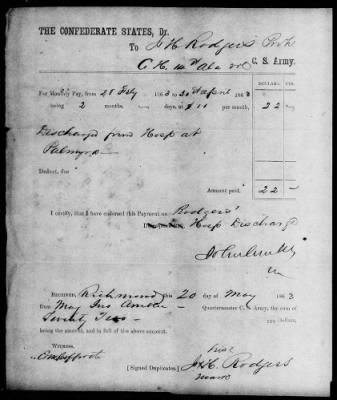 THE CONFEDERATE STATES, Dr.
To J. H. Rodgers Prvt
C. S. Army.
DOLLARS. CTS.
For Monthly Pay, from 28 Feby 1863 to 30th April 1863
being 2 months, days, at $11 per month, 22
Discharge from Hosp at
Deduct, for
Amount paid, 22
I certify, that I have endorsed this Payment on Rodgers'
Hosp Discharge
RECEIVED, Richmond this 20 day of May 1863
from Quartermaster C. S. Army, the sum of
Twenty Two Dollars,
being the amount, and in full of the above account.
Witness,
[Signed Duplicates.] J. H. Rodgers
mark